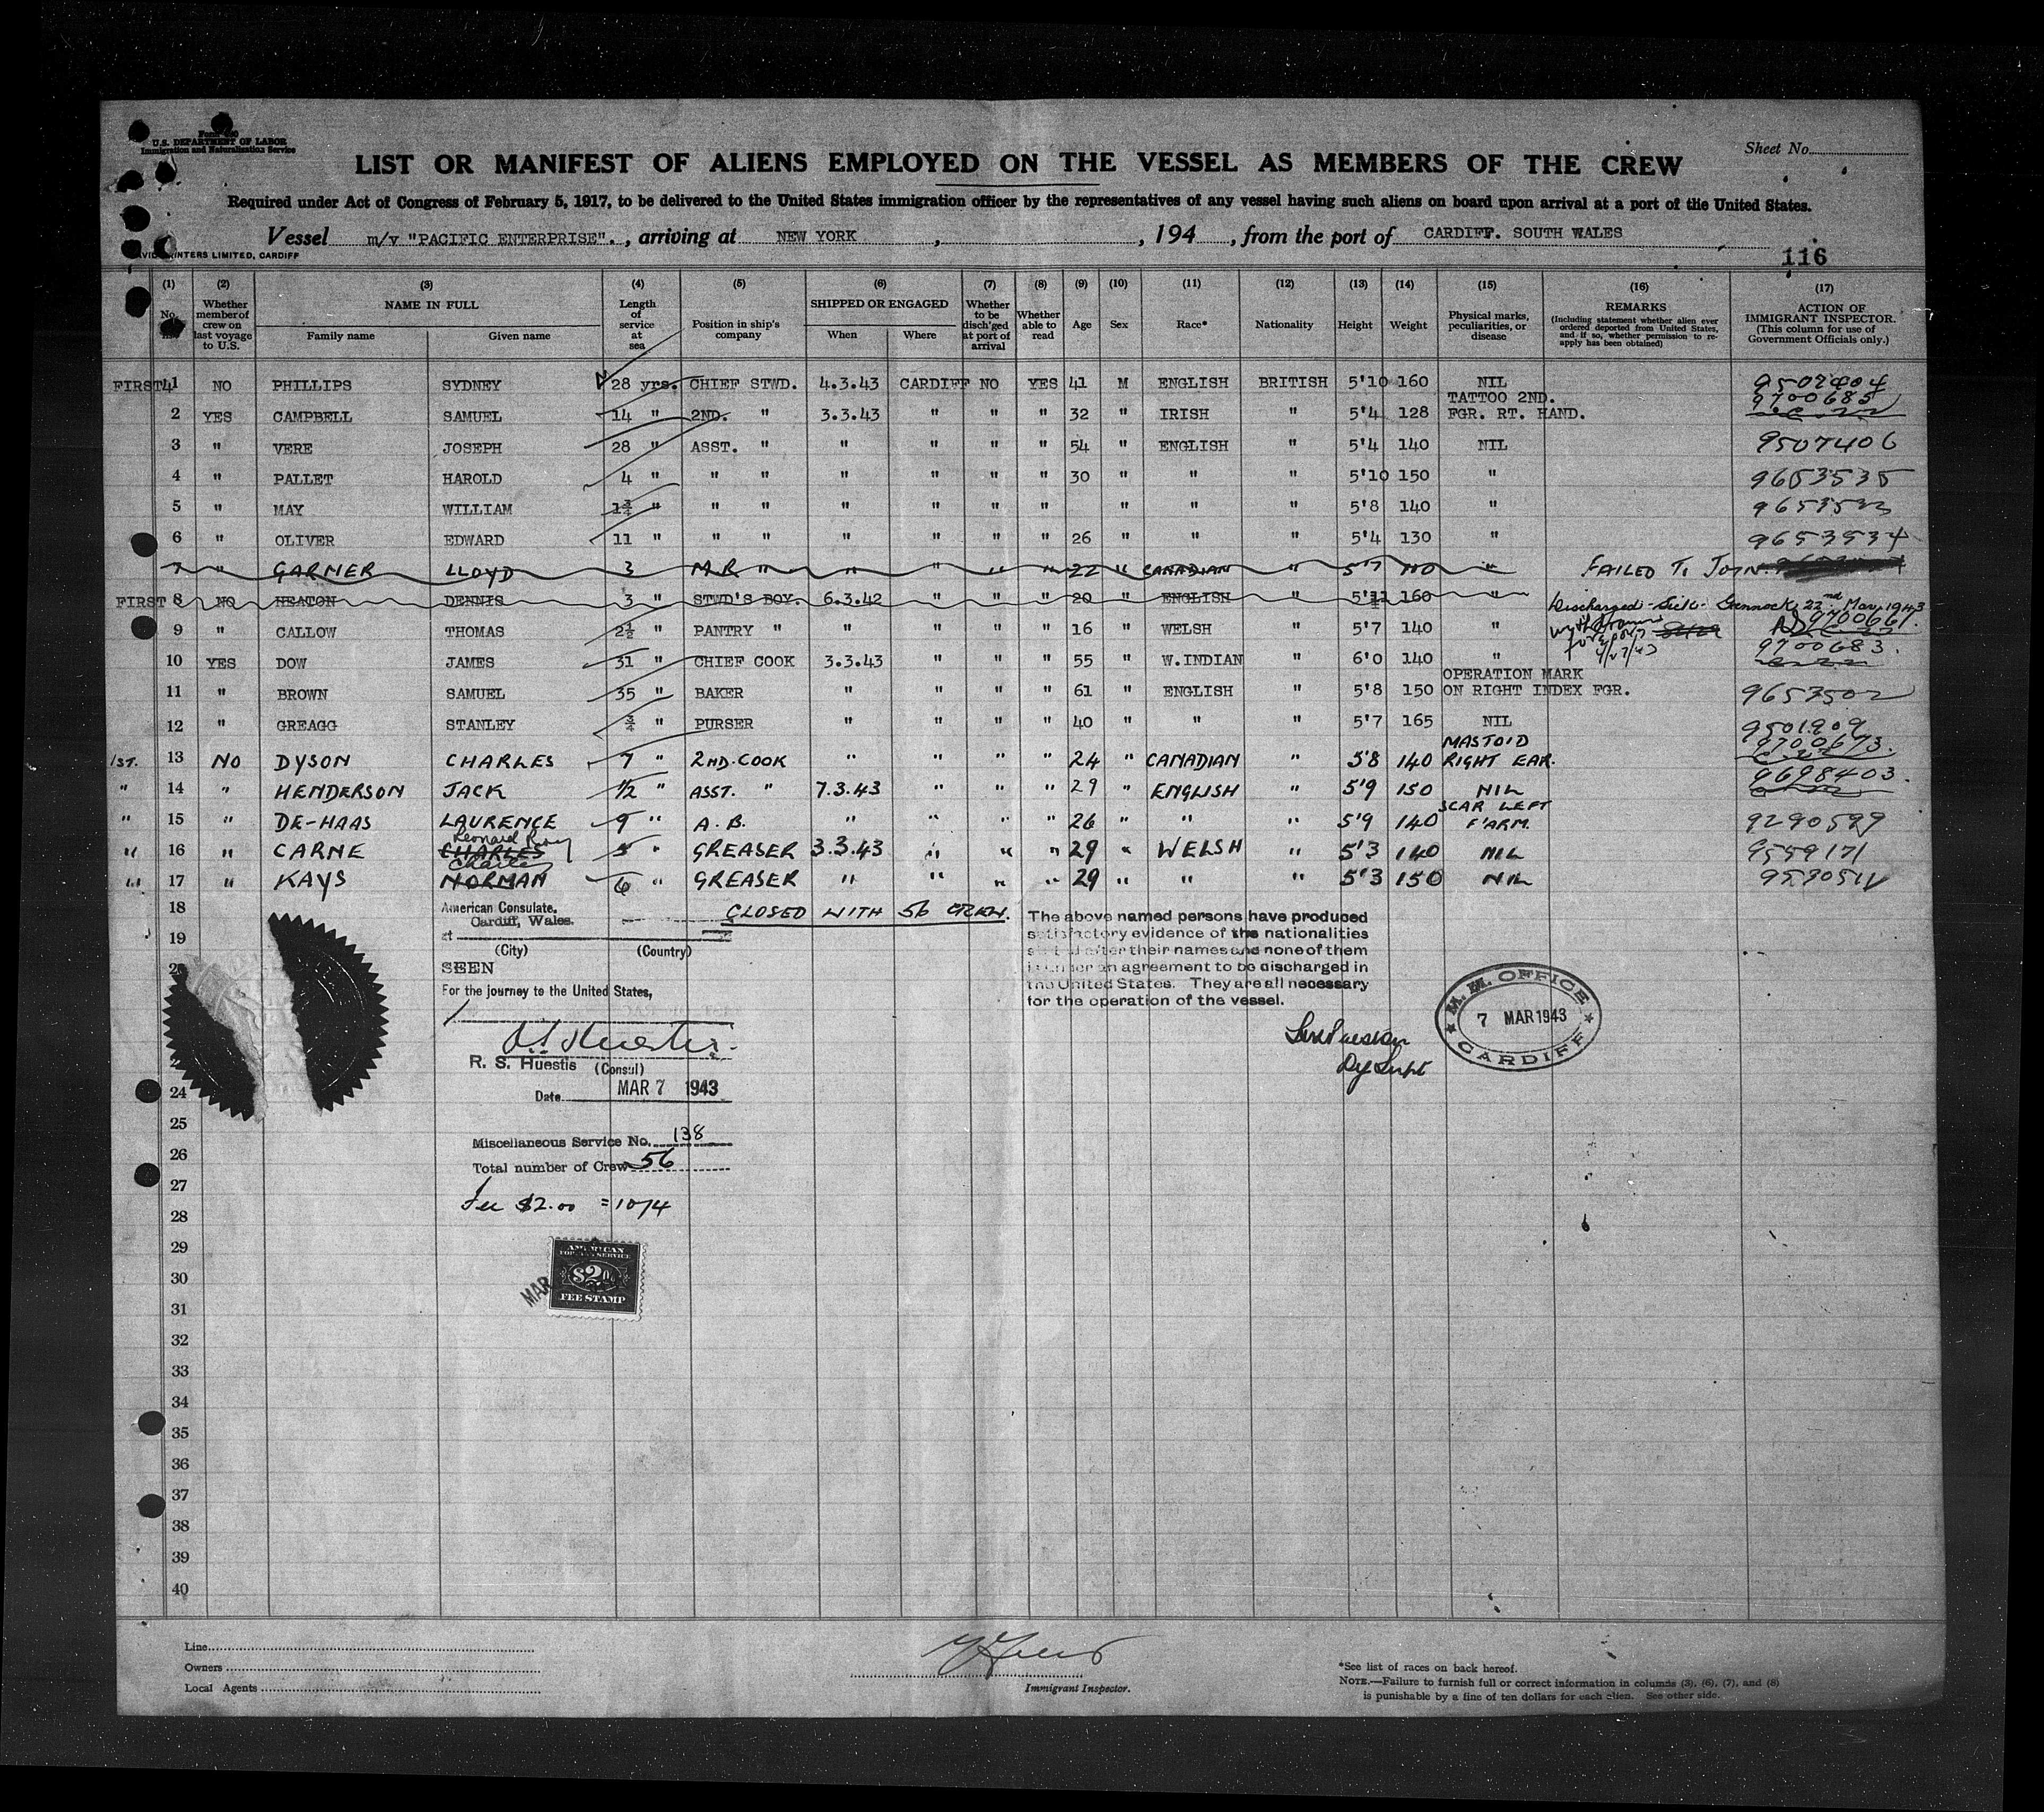 Form 680
U.S. DEPARTMENT OF LABOR
Immigration and Naturalization Service
Sheet No.
LIST OR MANIFEST OF ALIENS EMPLOYED ON THE VESSEL AS MEMBERS OF THE CREW
Required under Act of Congress of February 5, 1917, to be delivered to the United States immigration officer by the representatives of any vessel having such aliens on board upon arrival at a port of the United States.
Vessel m/v "PACIFIC ENTERPRISE"., arriving at NEW YORK, , 194 , from the port of CARDIFF. SOUTH WALES
PRINTERS LIMITED, CARDIFF
116
(1) (2) (3) (4) (5) (6) (7) (8) (9) (10) (11) (12) (13) (14) (15) (16) (17)
No. Whether member of crew on last voyage to U.S. NAME IN FULL Family name Given name Length of service at sea Position in ship's company SHIPPED OR ENGAGED When Where Whether to be disch'ged at port of arrival Whether able to read Age Sex Race* Nationality Height Weight Physical marks, peculiarities, or disease REMARKS (Including statement whether alien ever ordered deported from United States, and if so, whether permission to re-apply has been obtained) ACTION OF IMMIGRANT INSPECTOR. (This column for use of Government Officials only.)
FIRST 41 NO PHILLIPS SYDNEY 28 yrs. CHIEF STWD. 4.3.43 CARDIFF NO YES 41 M ENGLISH BRITISH 5'10 160 NIL
2 YES CAMPBELL SAMUEL 14 " 2ND. " 3.3.43 " " " 32 " IRISH " 5'4 128 TATTOO 2ND. FGR. RT. HAND. 9700685
3 " VERE JOSEPH 28 " ASST. " " " " " 54 " ENGLISH " 5'4 140 NIL 9507406
4 " PALLET HAROLD 4 " " " " " " " 30 " " " 5'10 150 " 9653535
5 " MAY WILLIAM 1¾ " " " " " " " " " " 5'8 140 "
6 " OLIVER EDWARD 11 " " " " " " " 26 " " " 5'4 130 " 9653534
7 " GARNER LLOYD 3 M.R " " " " " 22 " CANADIAN " 5'7 " FAILED TO JOIN
FIRST 8 NO HEATON DENNIS 3 " STWD'S BOY. 6.3.42 " " " 20 " ENGLISH " 5'11 160 " Discharged-Sick- Greenock, 22nd Mar, 1943
9 " CALLOW THOMAS 2½ " PANTRY " " " " " 16 " WELSH " 5'7 140 " 9700661
10 YES DOW JAMES 31 " CHIEF COOK 3.3.43 " " " 55 " W.INDIAN " 6'0 140 " 9700683.
11 " BROWN SAMUEL 35 " BAKER " " " " 61 " ENGLISH " 5'8 150 OPERATION MARK ON RIGHT INDEX FGR. 9653502
12 " GREAGG STANLEY ¾ " PURSER " " " " 40 " " " 5'7 165 NIL 9501909
1ST. 13 NO DYSON CHARLES 7 " 2ND. COOK " " " " 24 " CANADIAN " 5'8 140 MASTOID RIGHT EAR. 9700673.
" 14 " HENDERSON JACK 1/2 " ASST. " 7.3.43 " " " 29 " ENGLISH " 5'9 150 NIL 9698403.
" 15 " DE-HAAS LAURENCE 9 " A.B. " " " " 26 " " " 5'9 140 SCAR LEFT F'ARM. 9290599
" 16 " CARNE CHARLES Leonard 5 " GREASER 3.3.43 " " " 29 " WELSH " 5'3 140 NIL 9559171
" 17 " KAYS NORMAN Charles 6 " GREASER " " " " 29 " " " 5'3 150 NIL
18
CLOSED WITH 56 CREW.
19
American Consulate,
Cardiff, Wales.
at
(City) (Country)
SEEN
For the journey to the United States,
R. S. Huestis (Consul)
Date MAR 7 1943
The above named persons have produced
satisfactory evidence of the nationalities
stated after their names and none of them
is under an agreement to be discharged in
the United States. They are all necessary
for the operation of the vessel.
Dy Supt
M. M. OFFICE
7 MAR 1943
CARDIFF
24
25
Miscellaneous Service No. 138
26
Total number of Crew 56
27
Fee $2.00 = 10/4
28
29
AMERICAN
FOREIGN SERVICE
$2.00
FEE STAMP
MAR
30
31
32
33
34
35
36
37
38
39
40
Line
Owners
Local Agents
Immigrant Inspector.
*See list of races on back hereof.
NOTE.—Failure to furnish full or correct information in columns (3), (6), (7), and (8)
is punishable by a fine of ten dollars for each alien. See other side.